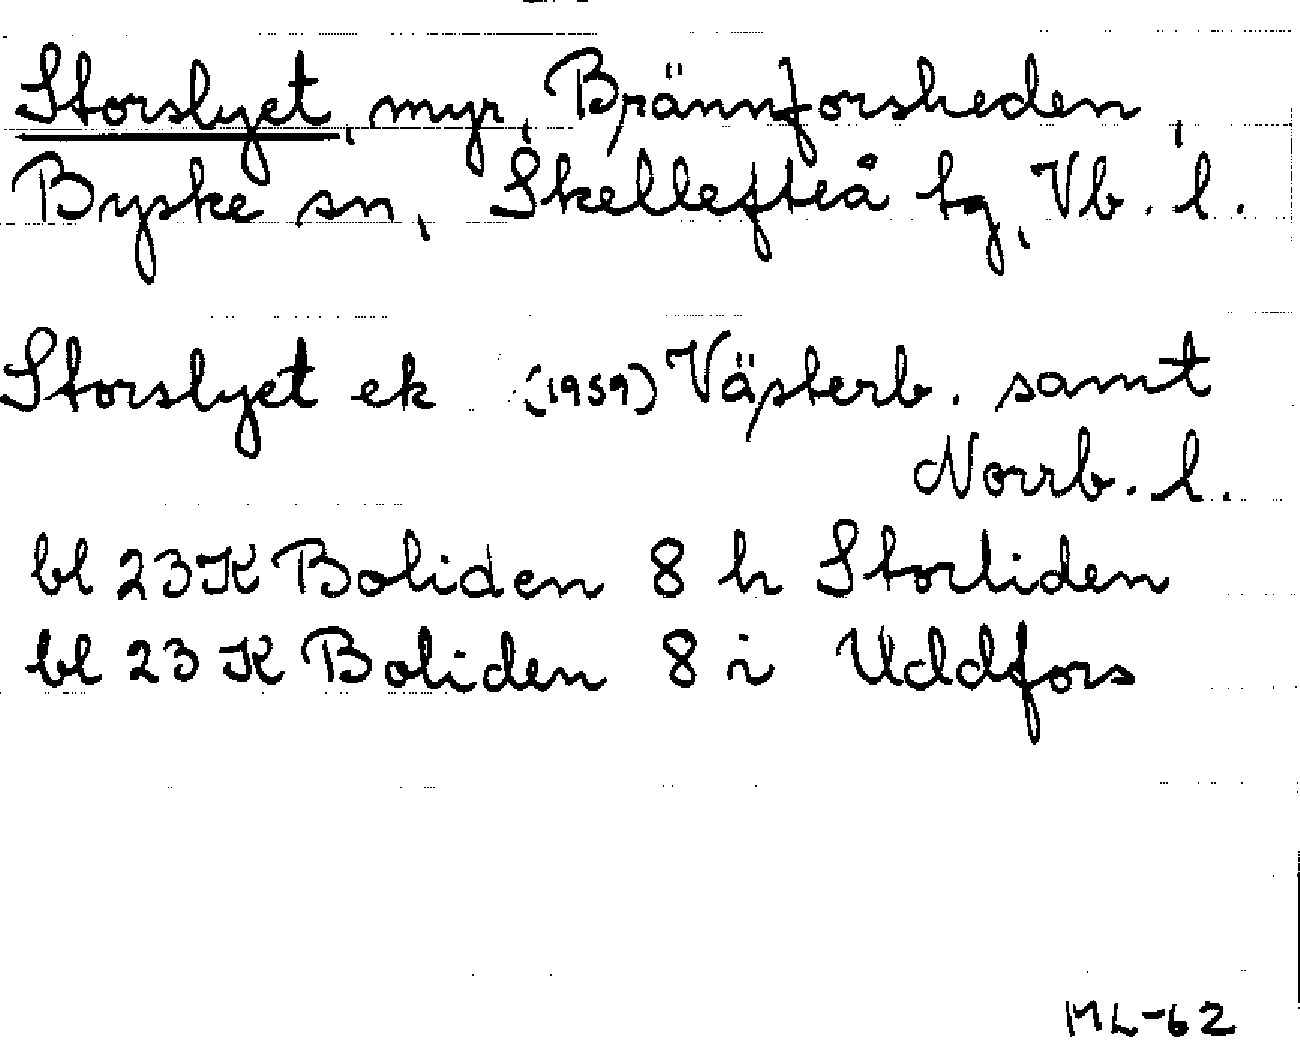 Storslyet, myr, Brännforsheden,
Byske sn, Skellefteå tg, Vb. l.
Storslyet ek (1959) Västerb. samt
Norrb. l.
bl 23K Boliden 8 h Storliden
bl 23K Boliden 8 i Uddfors
ML-62